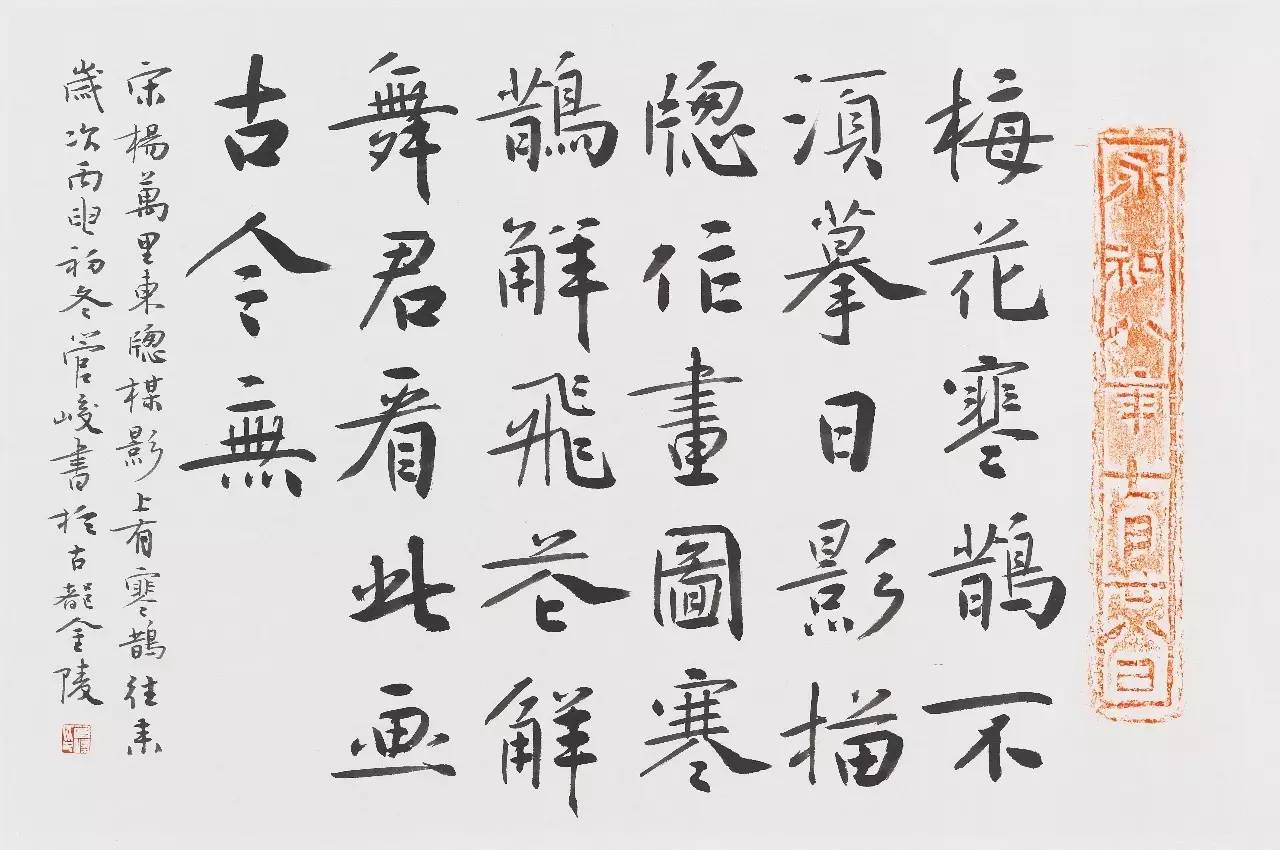 永和八年
梅花寒鵲不
須摹日影描
牕作畫圖寒
鵲解飛花解
舞君看此画
古今無
宋楊萬里東牕楳影上有寒鵲往来
歲次丙申初冬管峻書於古都金陵